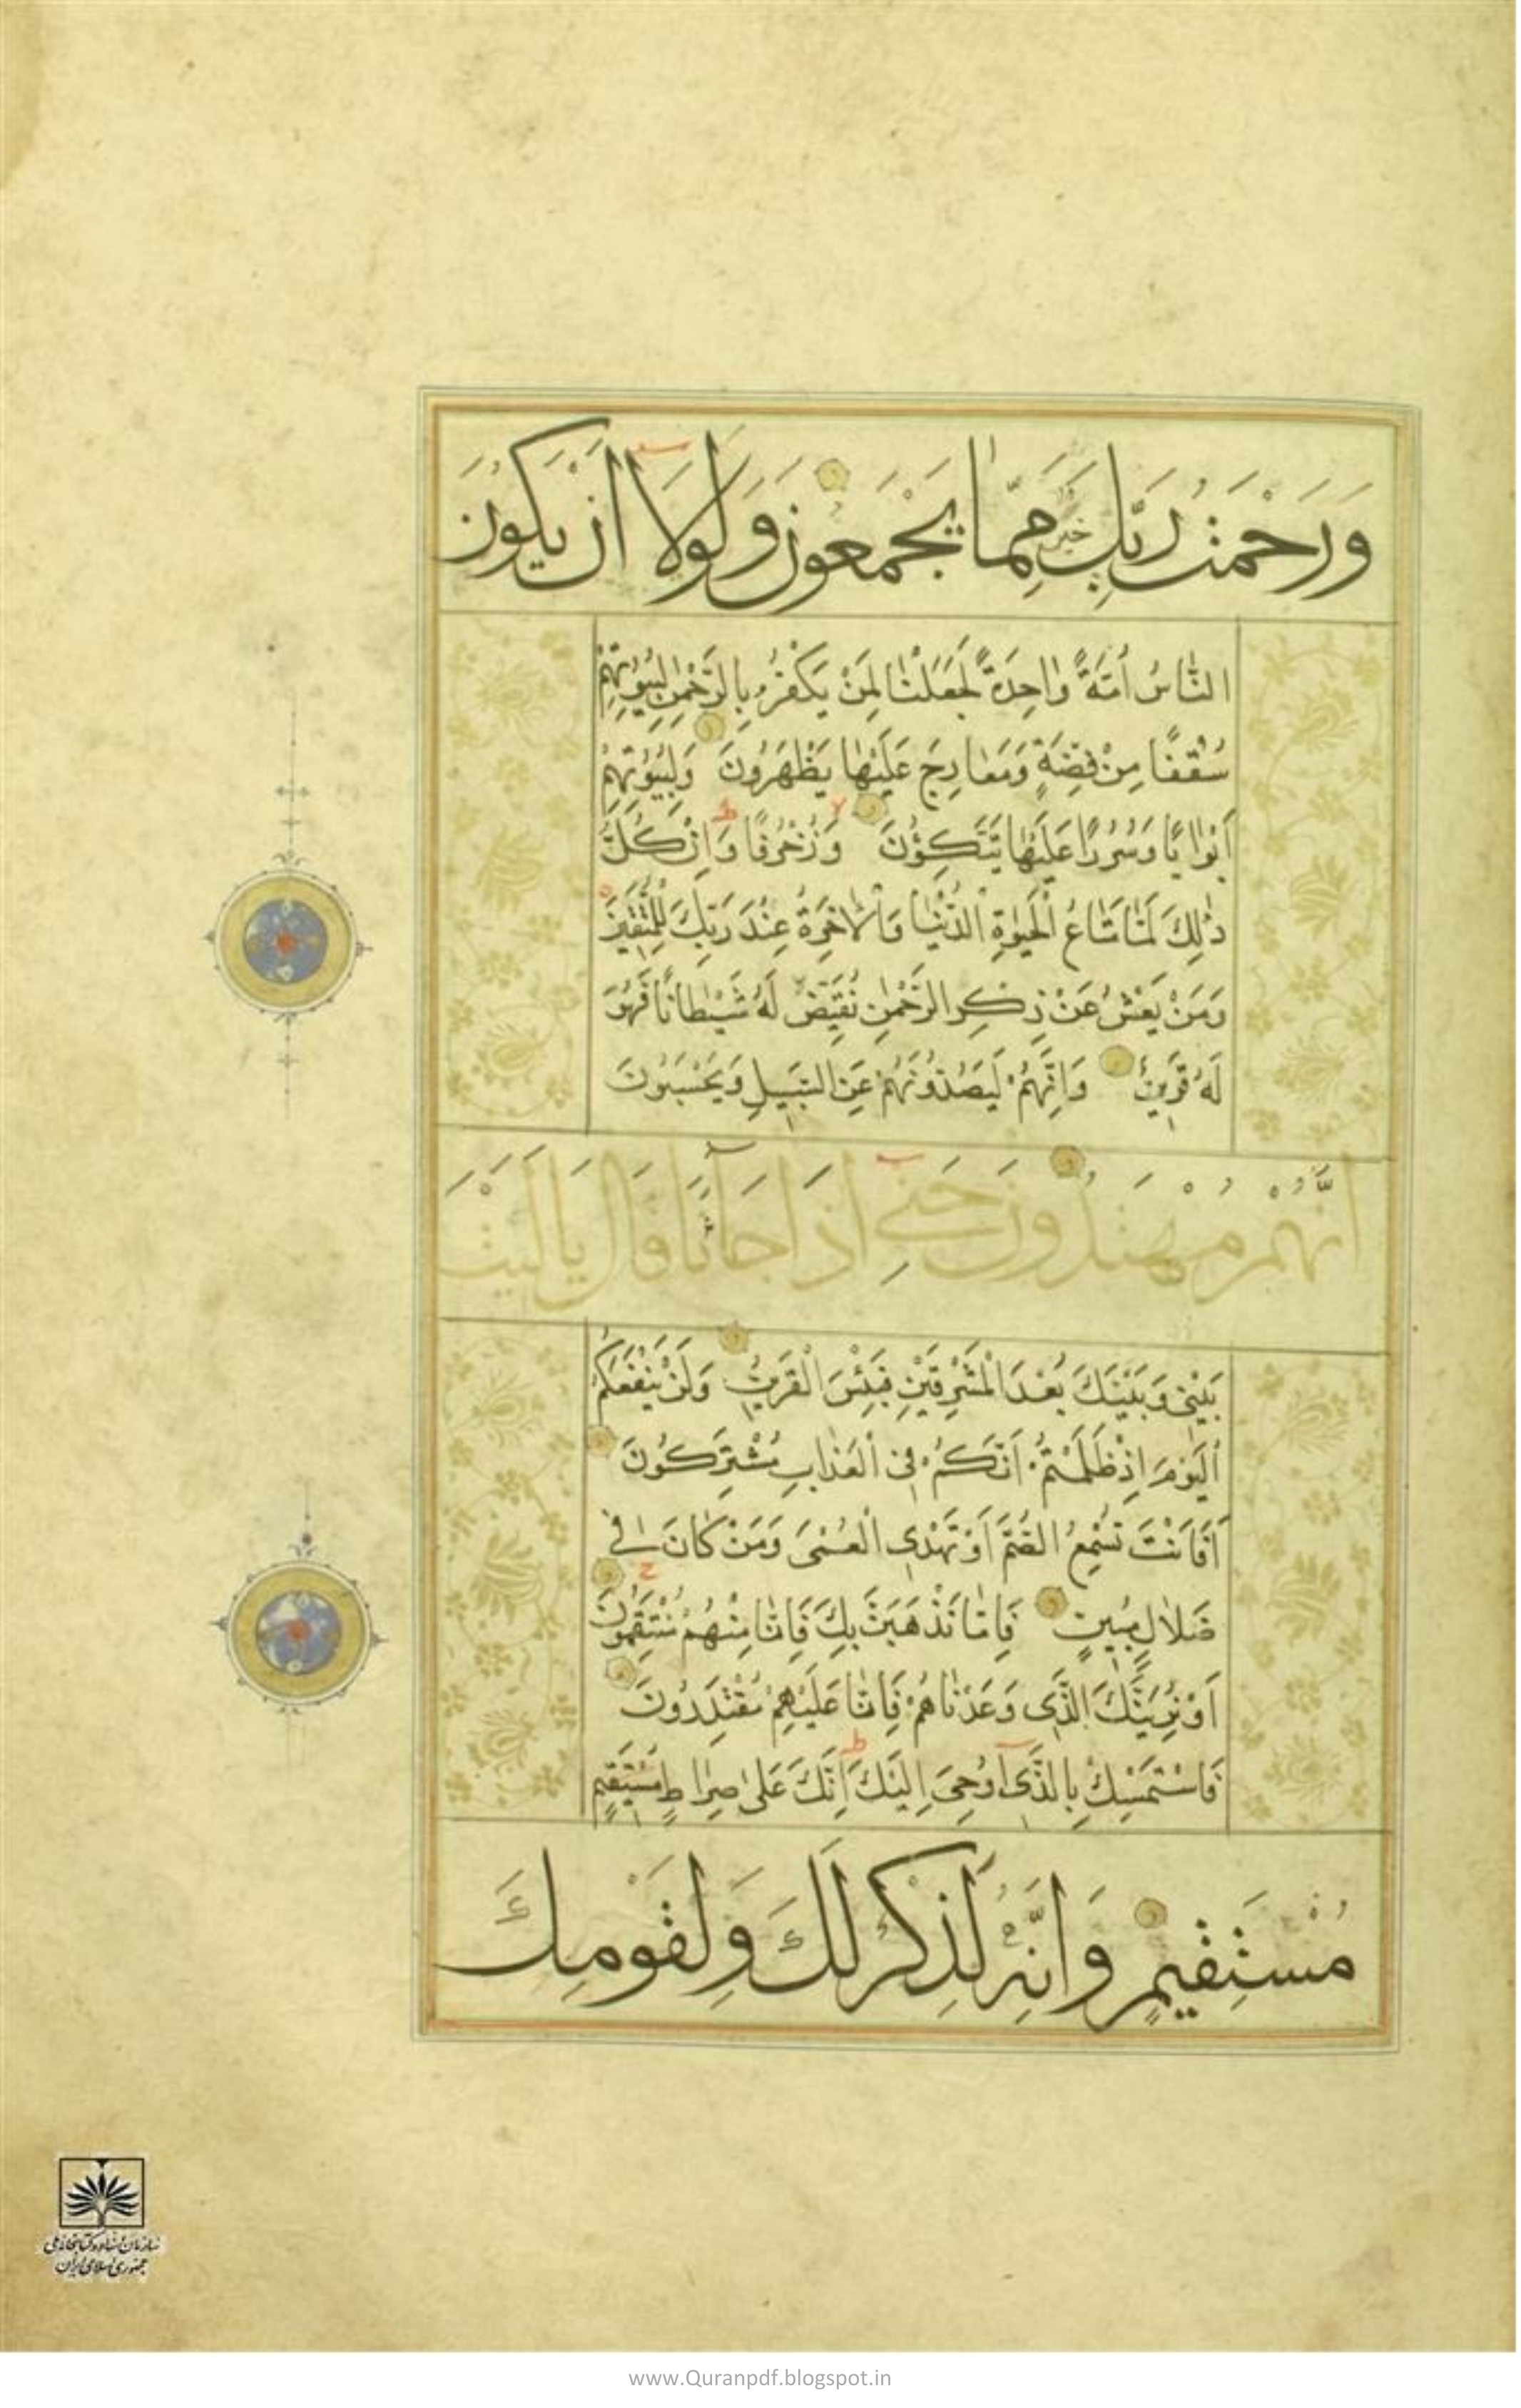 وَرَحْمَتُ رَبِّكَ خَيْرٌ مِمَّا يَجْمَعُونَ وَلَوْلَا أَنْ يَكُونَ
النَّاسُ أُمَّةً وَاحِدَةً لَجَعَلْنَا لِمَنْ يَكْفُرُ بِالرَّحْمٰنِ لِبُيُوتِهِمْ
سُقُفًا مِنْ فِضَّةٍ وَمَعَارِجَ عَلَيْهَا يَظْهَرُونَ وَلِبُيُوتِهِمْ
أَبْوَابًا وَسُرُرًا عَلَيْهَا يَتَّكِؤُنَ وَزُخْرُفًا وَاِنْ كُلُّ
ذٰلِكَ لَمَّا مَتَاعُ الْحَيٰوةِ الدُّنْيَا وَالْاٰخِرَةُ عِنْدَ رَبِّكَ لِلْمُتَّقِينَ
وَمَنْ يَعْشُ عَنْ ذِكْرِ الرَّحْمٰنِ نُقَيِّضْ لَهُ شَيْطَانًا فَهُوَ
لَهُ قَرِينٌ وَاِنَّهُمْ لَيَصُدُّونَهُمْ عَنِ السَّبِيلِ وَيَحْسَبُونَ
اَنَّهُمْ مُهْتَدُونَ حَتّٰى اِذَا جَاۤءَنَا قَالَ يَالَيْتَ
بَيْنِي وَبَيْنَكَ بُعْدَ الْمَشْرِقَيْنِ فَبِئْسَ الْقَرِينُ وَلَنْ يَنْفَعَكُمُ
الْيَوْمَ اِذْ ظَلَمْتُمْ اَنَّكُمْ فِي الْعَذَابِ مُشْتَرِكُونَ
اَفَاَنْتَ تُسْمِعُ الصُّمَّ اَوْ تَهْدِي الْعُمْيَ وَمَنْ كَانَ فِي
ضَلَالٍ مُبِينٍ فَاِمَّا نَذْهَبَنَّ بِكَ فَاِنَّا مِنْهُمْ مُنْتَقِمُونَ
اَوْ نُرِيَنَّكَ الَّذِي وَعَدْنَاهُمْ فَاِنَّا عَلَيْهِمْ مُقْتَدِرُونَ
فَاسْتَمْسِكْ بِالَّذِي اُوحِيَ اِلَيْكَ اِنَّكَ عَلٰى صِرَاطٍ مُسْتَقِيمٍ
مُسْتَقِيمٍ وَاِنَّهُ لَذِكْرٌ لَكَ وَلِقَوْمِكَ
سازمان اسناد و کتابخانه ملی
جمهوری اسلامی ایران
www.Quranpdf.blogspot.in